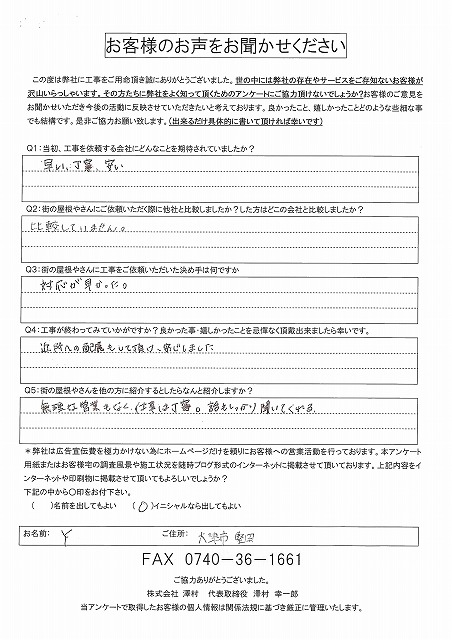 お客様のお声をお聞かせください
この度は弊社に工事をご用命頂き誠にありがとうございました。世の中には弊社の存在やサービスをご存知ないお客様が
沢山いらっしゃいます。その方たちに弊社をよく知って頂くためのアンケートにご協力頂けないでしょうか?お客様のご意見を
お聞かせいただき今後の活動に反映させていただきたいと考えております。良かったこと、嬉しかったことどのような些細な事
でも結構です。是非ご協力お願い致します。(出来るだけ具体的に書いて頂ければ幸いです)
Q1:当初、工事を依頼する会社にどんなことを期待されていましたか?
早い、丁寧、安い
Q2:街の屋根やさんにご依頼いただく際に他社と比較しましたか?した方はどこの会社と比較しましたか?
比較していません。
Q3:街の屋根やさんに工事をご依頼いただいた決め手は何ですか
対応が良かった。
Q4:工事が終わってみていかがですか?良かった事・嬉しかったことを忌憚なく頂戴出来ましたら幸いです。
近所への配慮もして頂け、安心しました
Q5:街の屋根やさんを他の方に紹介するとしたらなんと紹介しますか?
無理な営業もなく、仕事は丁寧。話もしっかり聞いてくれる。
*弊社は広告宣伝費を極力かけない為にホームページだけを頼りにお客様への営業活動を行っております。本アンケート
用紙またはお客様宅の調査風景や施工状況を随時ブログ形式のインターネットに掲載させて頂いております。上記内容をイ
ンターネットや印刷物に掲載させて頂いてもよろしいでしょうか?
下記の中から〇印をお付下さい。
( )名前を出してもよい (○)イニシャルなら出してもよい
お名前: Y ご住所: 大津市 堅田
FAX 0740-36-1661
ご協力ありがとうございました。
株式会社 澤村 代表取締役 澤村 幸一郎
当アンケートで取得したお客様の個人情報は関係法規に基づき厳正に管理いたします。